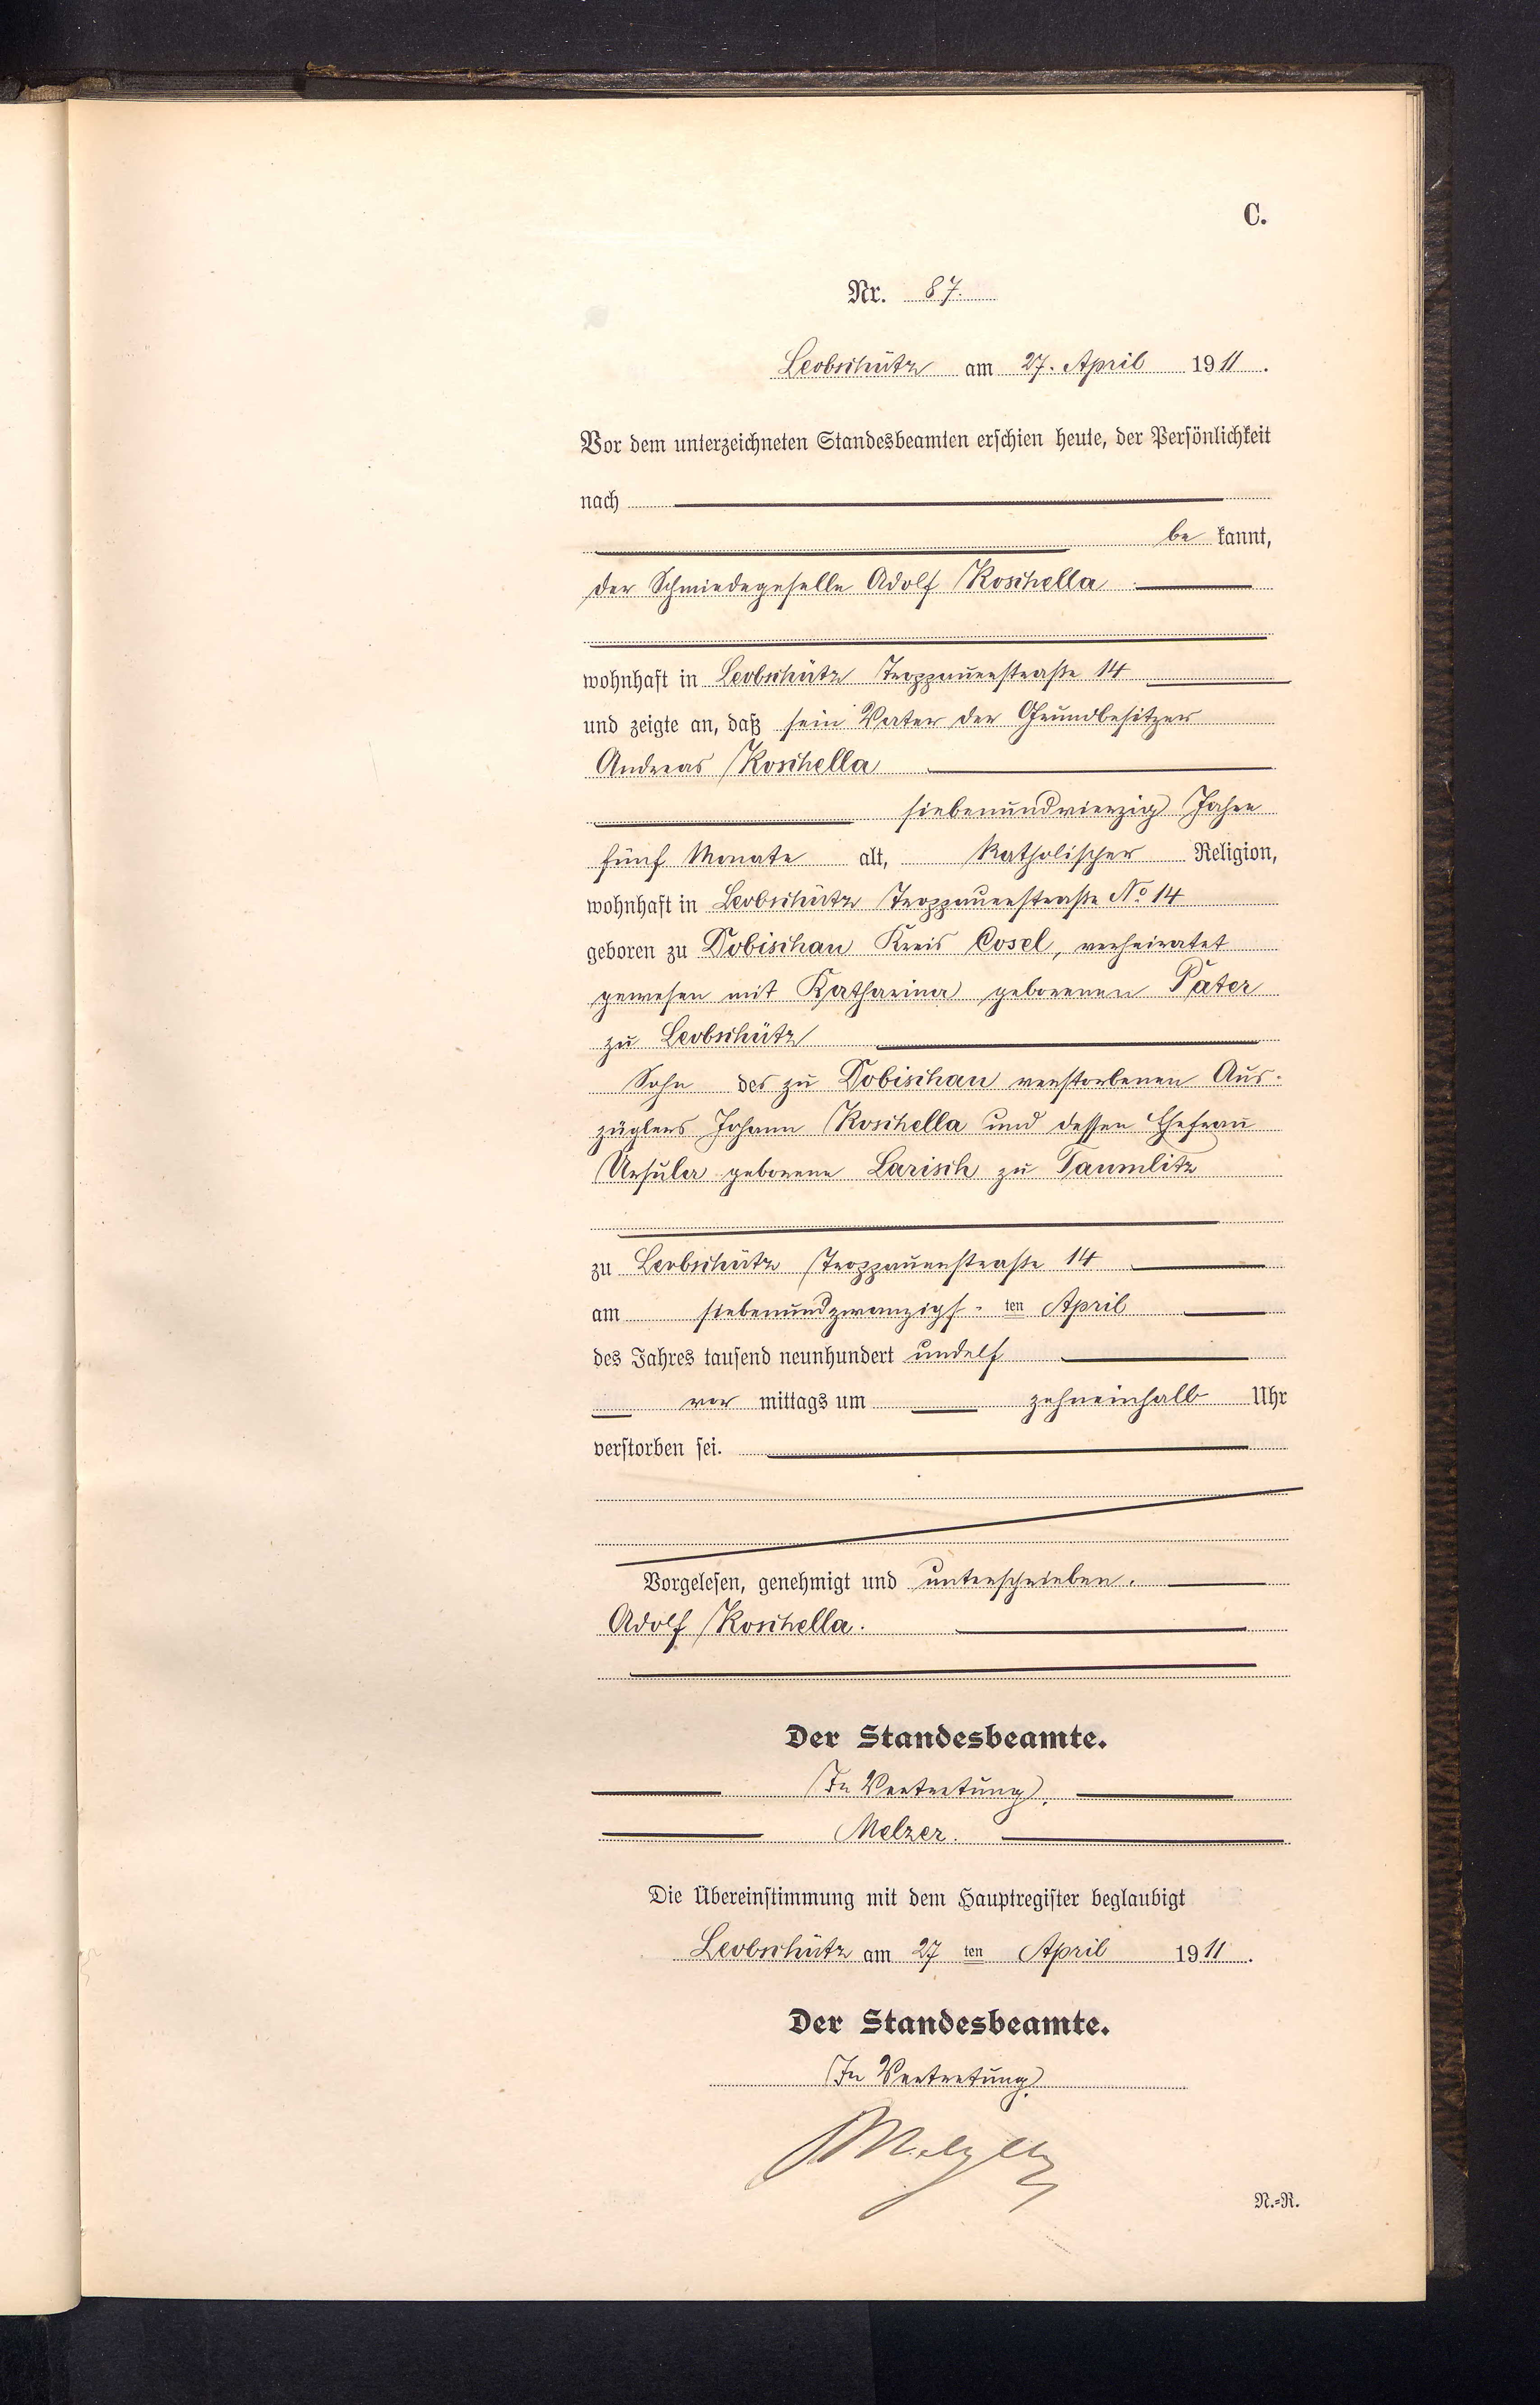 C.
Nr. 87.
Leobschütz am 27. April 1911.
Vor dem unterzeichneten Standesbeamten erschien heute, der Persönlichkeit
nach
be kannt,
der Schmiedegeselle Adolf Koschella
wohnhaft in Leobschütz Troppauerstraße 14
und zeigte an, daß sein Vater der Grundbesitzer
Andreas Koschella
siebenundvierzig Jahre
fünf Monate alt, katholischer Religion,
wohnhaft in Leobschütz Troppauerstraße No 14
geboren zu Dobischau Kreis Cosel, verheiratet
gewesen mit Katharina geborenen Pater
zu Leobschütz
Sohn des zu Dobischau verstorbenen Aus-
züglers Johann Koschella und dessen Ehefrau
Ursula geborene Larisch zu Taumlitz
zu Leobschütz Troppauerstraße 14
am siebenundzwanzigs-ten April
des Jahres tausend neunhundert undelf
vor mittags um zehneinhalb Uhr
verstorben sei.
Vorgelesen, genehmigt und unterschrieben.
Adolf Koschella.
Der Standesbeamte.
In Vertretung.
Melzer.
Die Übereinstimmung mit dem Hauptregister beglaubigt
Leobschütz am 27 ten April 1911.
Der Standesbeamte.
In Vertretung.
Melzer
N.=R.